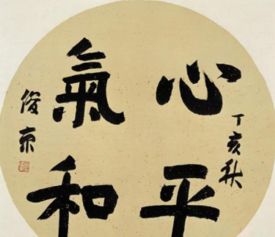 丁亥秋
心平
氣和
俊東